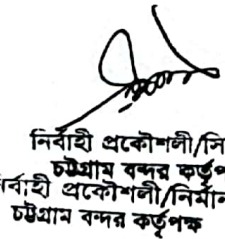 নির্বাহী প্রকৌশলী/সি
চট্টগ্রাম বন্দর কর্তৃপ
র্বাহী প্রকৌশলী/নির্মান
চট্টগ্রাম বন্দর কর্তৃপক্ষ